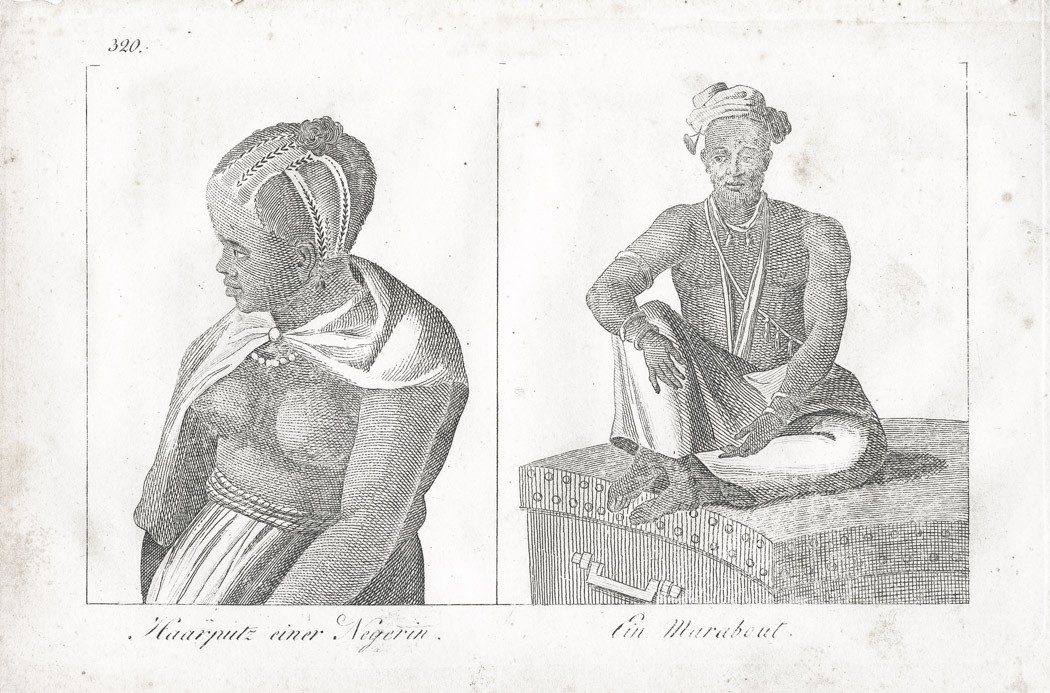 320.
Haarputz einer Negerin.
Ein Marabout.